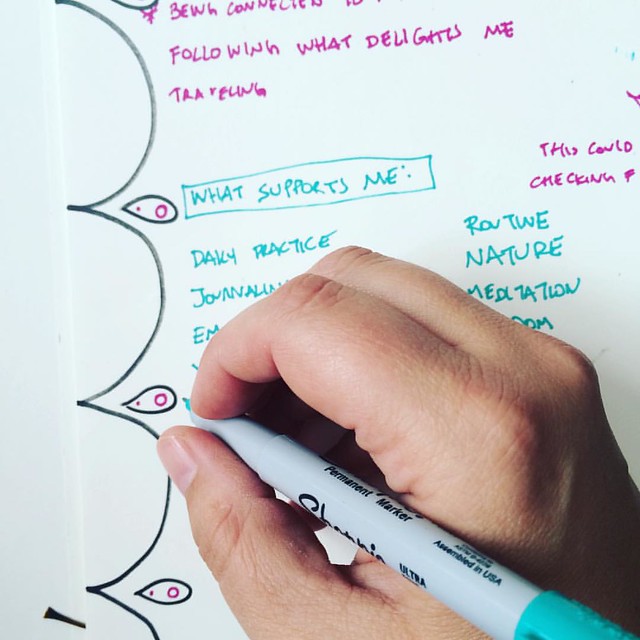 * BEING CONNECTED TO
FOLLOWING WHAT DELIGHTS ME
TRAVELING
THIS COULD
CHECKING F
WHAT SUPPORTS ME:
DAILY PRACTICE
JOURNALIN
EM
ROUTINE
NATURE
MEDITATION
DOM
Permanent Marker
Sharpie
ULTRA
Assembled in USA